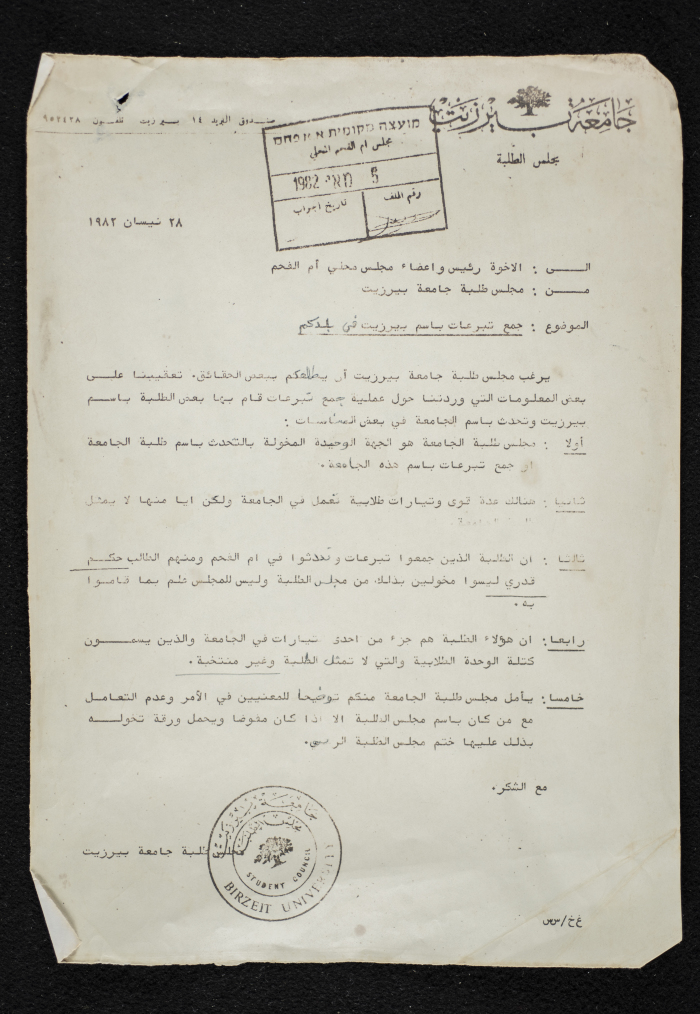 جامعة بيرزيت
صندوق البريد ١٤ بيرزيت تلفون ٩٥٢٤٣٨
מועצה מקומית א אום פחם
مجلس ام الفحم المحلي
5 מאי 1982
رقم الملف
تاريخ الجواب
مجلس الطلبة
٢٨ نيسان ١٩٨٢
الــى : الاخوة رئيس واعضاء مجلس محلي أم الفحم
مــن : مجلس طلبة جامعة بيرزيت
الموضوع : جمع تبرعات باسم بيرزيت في بلدكم
يرغب مجلس طلبة جامعة بيرزيت أن يطلعكم ببعض الحقائق. تعقيبنا علــى
بعض المعلومات التي وردتنا حول عملية جمع تبرعات قام بها بعض الطلبة باســم
بيرزيت وتحدث باسم الجامعة في بعض المناسبات :
أولا : مجلس طلبة الجامعة هو الجهة الوحيدة المخولة بالتحدث باسم طلبة الجامعة
او جمع تبرعات باسم هذه الجامعة.
ثانيا : هنالك عدة قوى وتيارات طلابية تعمل في الجامعة ولكن ايا منها لا يمثل
ثالثا : ان الطلبة الذين جمعوا تبرعات وتحدثوا في ام الفحم ومنهم الطالب حكــم
قدري ليسوا مخولين بذلك من مجلس الطلبة وليس للمجلس علم بما قامــوا
به.
رابعا : ان هؤلاء الطلبة هم جزء من احدى تيارات في الجامعة والذين يسمــون
كتلة الوحدة الطلابية والتي لا تمثل الطلبة وغير منتخبة.
خامسا : يأمل مجلس طلبة الجامعة منكم توضيحا للمعنيين في الأمر وعدم التعامـل
مع من كان باسم مجلس الطلبة الا اذا كان مفوضا ويحمل ورقة تخولــه
بذلك عليها ختم مجلس الطلبة الرسمي.
مع الشكر.
مجلس طلبة جامعة بيرزيت
جامعة بيرزيت
مجلس الطلبة
STUDENT COUNCIL
BIRZEIT UNIVERSITY
غ خ/س س